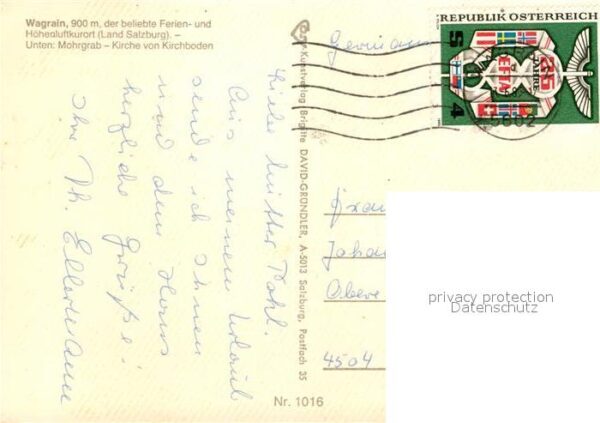 Wagrain, 900 m, der beliebte Ferien- und
Höhenluftkurort (Land Salzburg). –
Unten: Mohrgrab – Kirche von Kirchboden
Kunstverlag Brigitte DAVID-GRÜNDLER, A-5013 Salzburg, Postfach 35
Nr. 1016
Germany
REPUBLIK ÖSTERREICH
25
JAHRE
EFTA
S 4
5602
Aus meinem Urlaub
sende ich Ihnen
und dem Haus
herzliche Grüße!
Ihre Th.
Johan
Obere
4504
privacy protection
Datenschutz